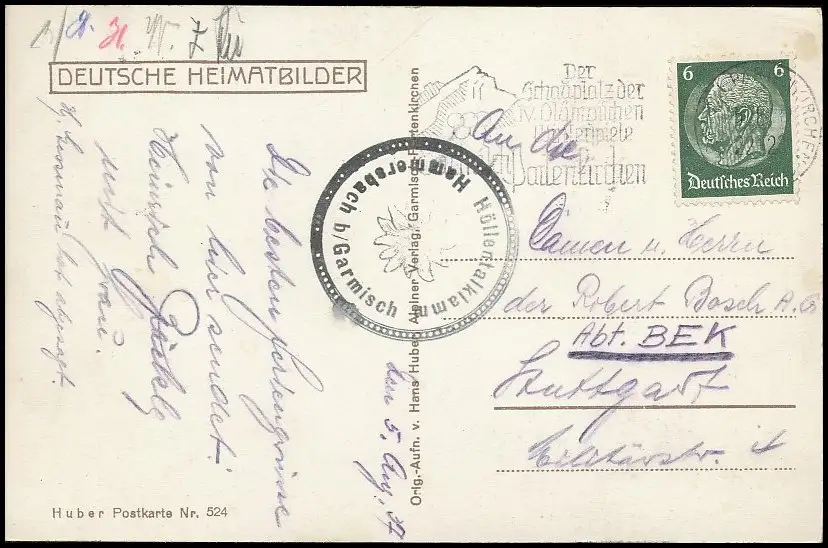 DEUTSCHE HEIMATBILDER
Die besten Feriengrüsse
von hier sendet
Heinrich
mit Frau.
H. hat abgesagt.
den 5. Aug. 37
Huber Postkarte Nr. 524
Orig.-Aufn. v. Hans Huber, Alpiner Verlag, Garmisch-Partenkirchen
Höllentalklamm
Hammersbach b/Garmisch
Der
Schauplatz der
IV. Olympischen
Winterspiele
Partenkirchen
6 6
Deutsches Reich
An die
Damen u. Herren
der Robert Bosch A.G
Abt. BEK
Stuttgart
Militärstr. 4